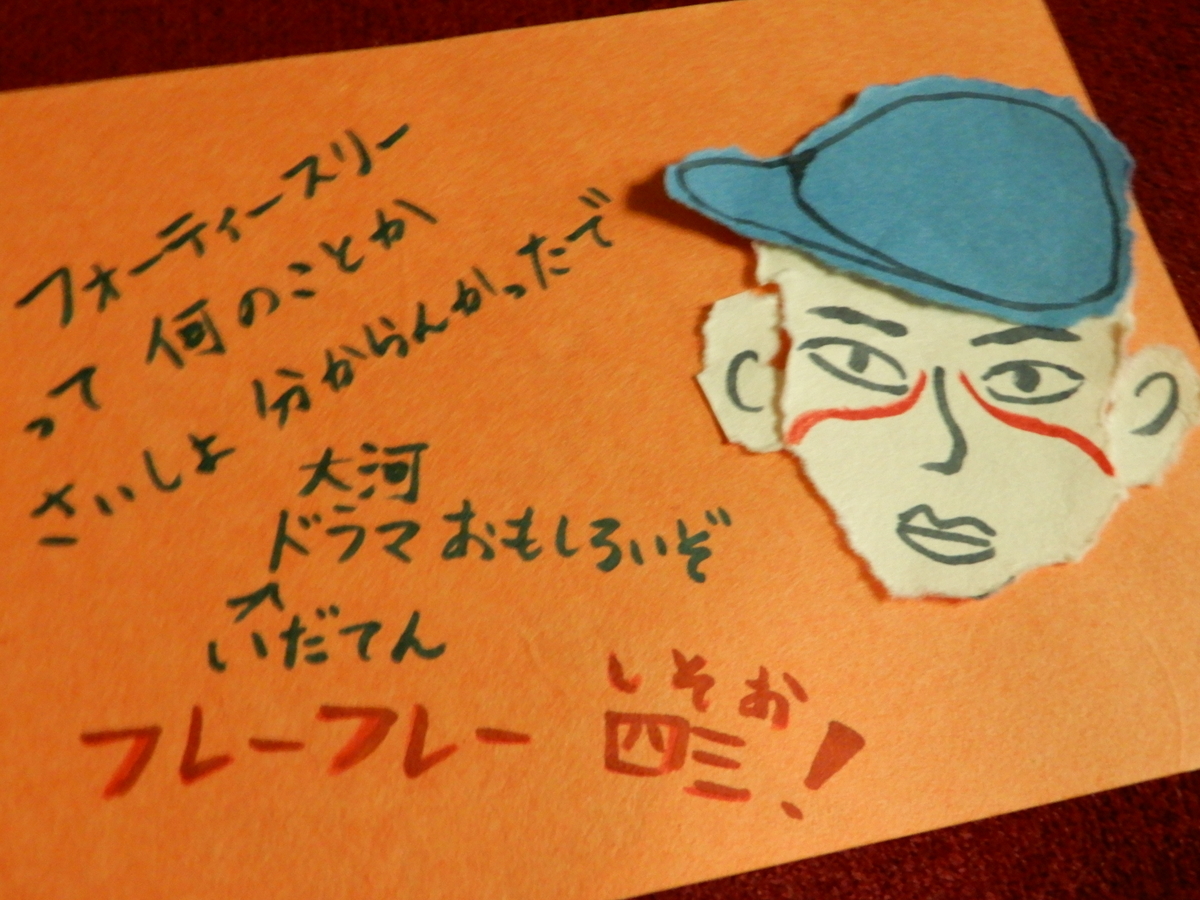 フォーティースリー
って 何のことか
さいしょ 分からんかったで
大河
ドラマ おもしろいぞ
いだてん
しそお
フレーフレー 四三!